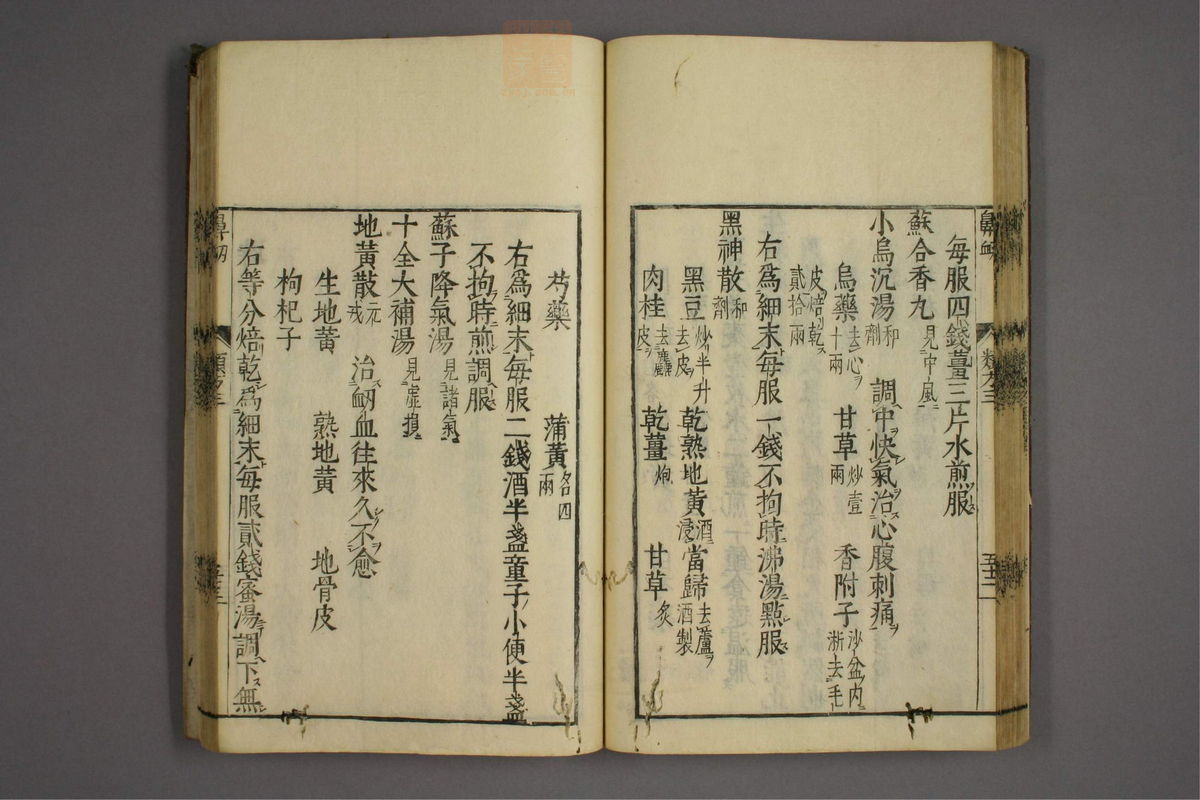 每服四錢薑三片水煎服
蘇合香丸 見中風
小烏沉湯 和劑 調中快氣治心腹刺痛
烏藥 去心十兩 甘草 炒壹兩 香附子 沙盆內淅去毛
皮焙乾貳拾兩
右爲細末每服一錢不拘時沸湯點服
黑神散 和劑
黑豆 炒半升去皮 乾熟地黃 酒浸 當歸 去蘆酒製
肉桂 去麤皮 乾薑 炮 甘草 炙
芍藥 蒲黃 各四兩
右爲細末每服二錢酒半盞童子小便半盞
不拘時煎調服
蘇子降氣湯 見諸氣
十全大補湯 見虛損
地黃散 元戎 治衂血往來久不愈
生地黃 熟地黃 地骨皮
枸杞子
右等分焙乾爲細末每服貳錢蜜湯調下無
鼻衂